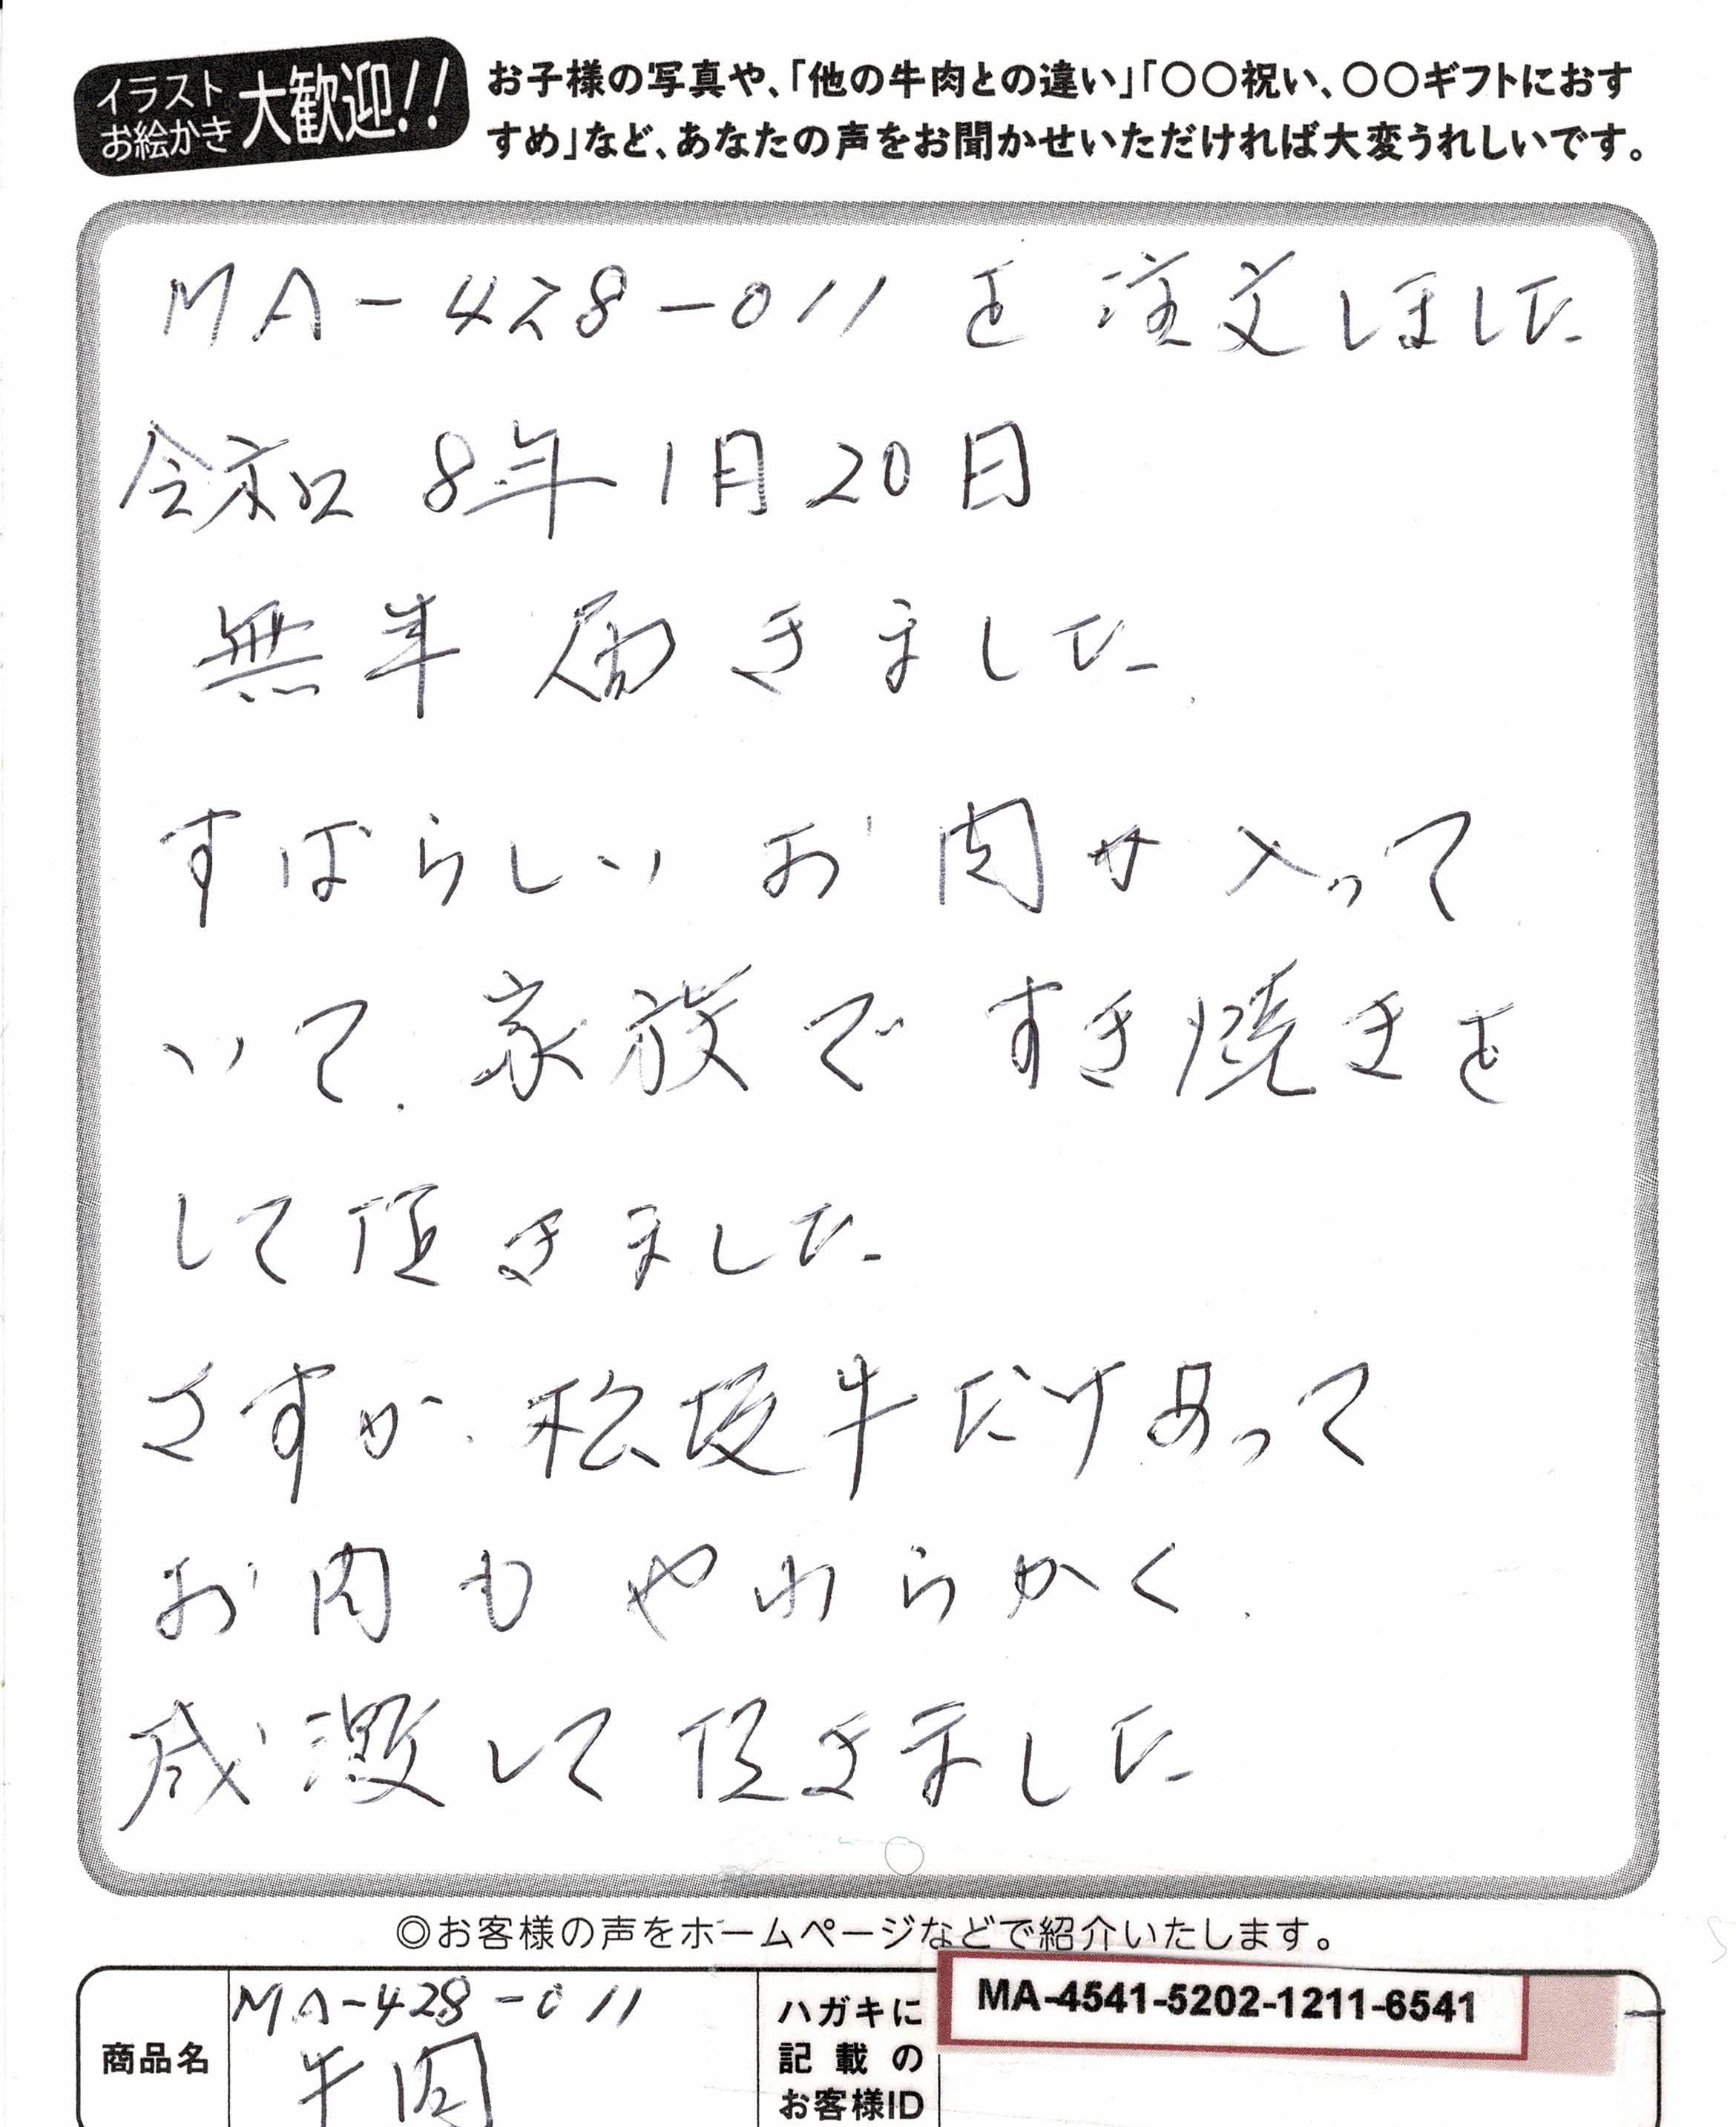 イラスト
お絵かき
大歓迎!!
お子様の写真や、「他の牛肉との違い」「〇〇祝い、〇〇ギフトにおす
すめ」など、あなたの声をお聞かせいただければ大変うれしいです。
MA-428-011 を注文しました
令和 8年 1月 20日
無事 届きました
すばらしい お肉が入って
いて、家族で すき焼きを
して頂きました
さすが、松坂牛だけあって
お肉も やわらかく、
感激して 頂きました
◎お客様の声をホームページなどで紹介いたします。
商品名
MA-428-011
牛肉
ハガキに
記載の
お客様ID
MA-4541-5202-1211-6541